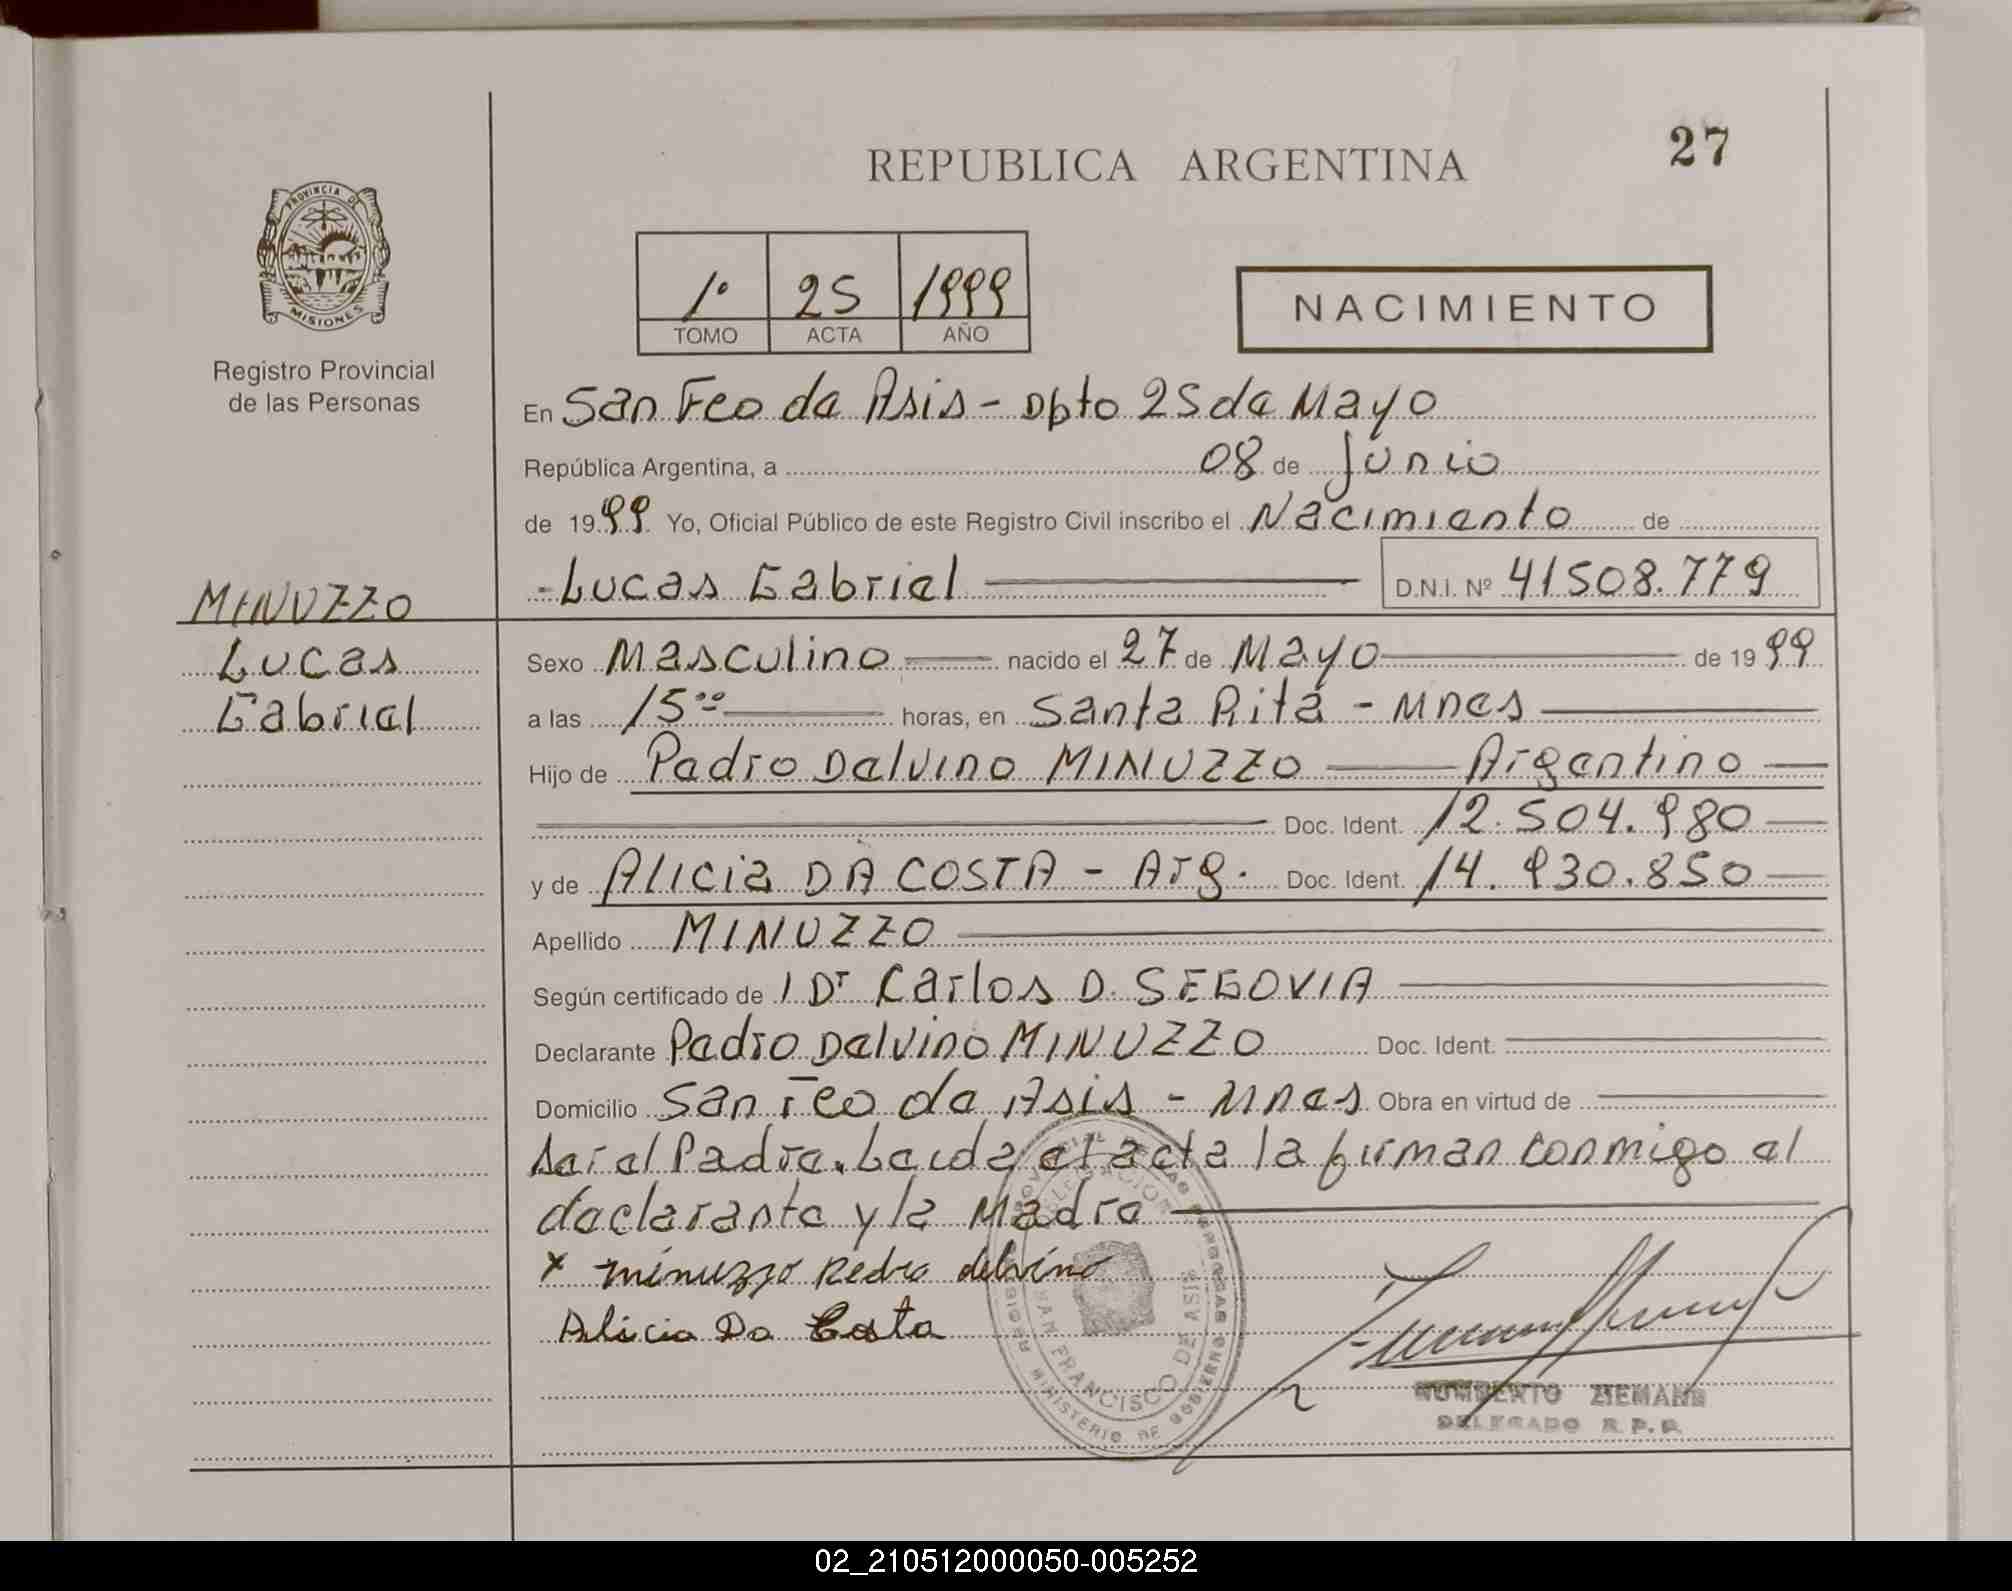 REPUBLICA ARGENTINA
27
PROVINCIA DE
MISIONES
Registro Provincial
de las Personas
1º 25 1999
TOMO ACTA AÑO
NACIMIENTO
En San Fco de Asis - Dpto 25 de Mayo
República Argentina, a 08 de Junio
de 1999 Yo, Oficial Público de este Registro Civil inscribo el Nacimiento de
- Lucas Gabriel D.N.I. Nº 41508.779
MINUZZO
Lucas
Gabriel
Sexo Masculino nacido el 27 de Mayo de 1999
a las 15ºº horas, en Santa Rita - Mnes
Hijo de Pedro Delvino MINUZZO Argentino
Doc. Ident. 12.504.980
y de Alicia DA COSTA - Arg. Doc. Ident. 14.930.850
Apellido MINUZZO
Según certificado de / Dr Carlos D. SEGOVIA
Declarante Pedro Delvino MINUZZO Doc. Ident.
Domicilio San Fco de Asis - Mnes Obra en virtud de
ser el Padre. Leida el acta la firman conmigo el
declarante y la Madre
x minuzzo Pedro delvino
Alicia Da Costa
REGISTRO PROVINCIAL DE LAS PERSONAS
MINISTERIO DE GOBIERNO
DELEGACION
SAN FRANCISCO DE ASIS
HUMBERTO ZIEMANN
DELEGADO R.P.P.
02_210512000050-005252